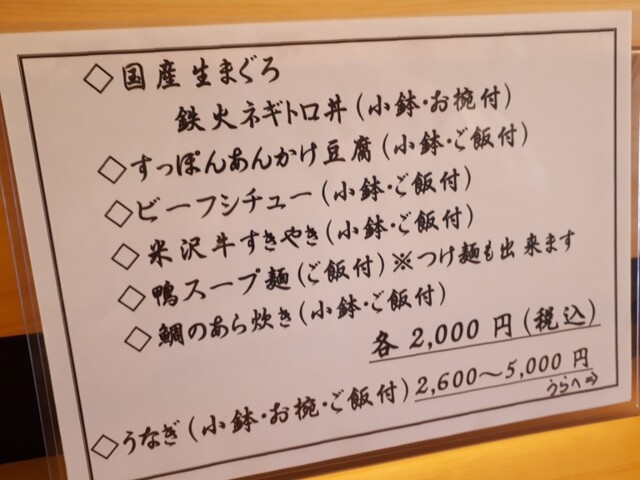 ◇国産生まぐろ
鉄火ネギトロ丼(小鉢・お椀付)
◇すっぽんあんかけ豆腐(小鉢・ご飯付)
◇ビーフシチュー(小鉢・ご飯付)
◇米沢牛すきやき(小鉢・ご飯付)
◇鴨スープ麺(ご飯付)※つけ麺も出来ます
◇鯛のあら炊き(小鉢・ご飯付)
各2,000円(税込)
◇うなぎ(小鉢・お椀・ご飯付)2,600～5,000円
うらへ⇒